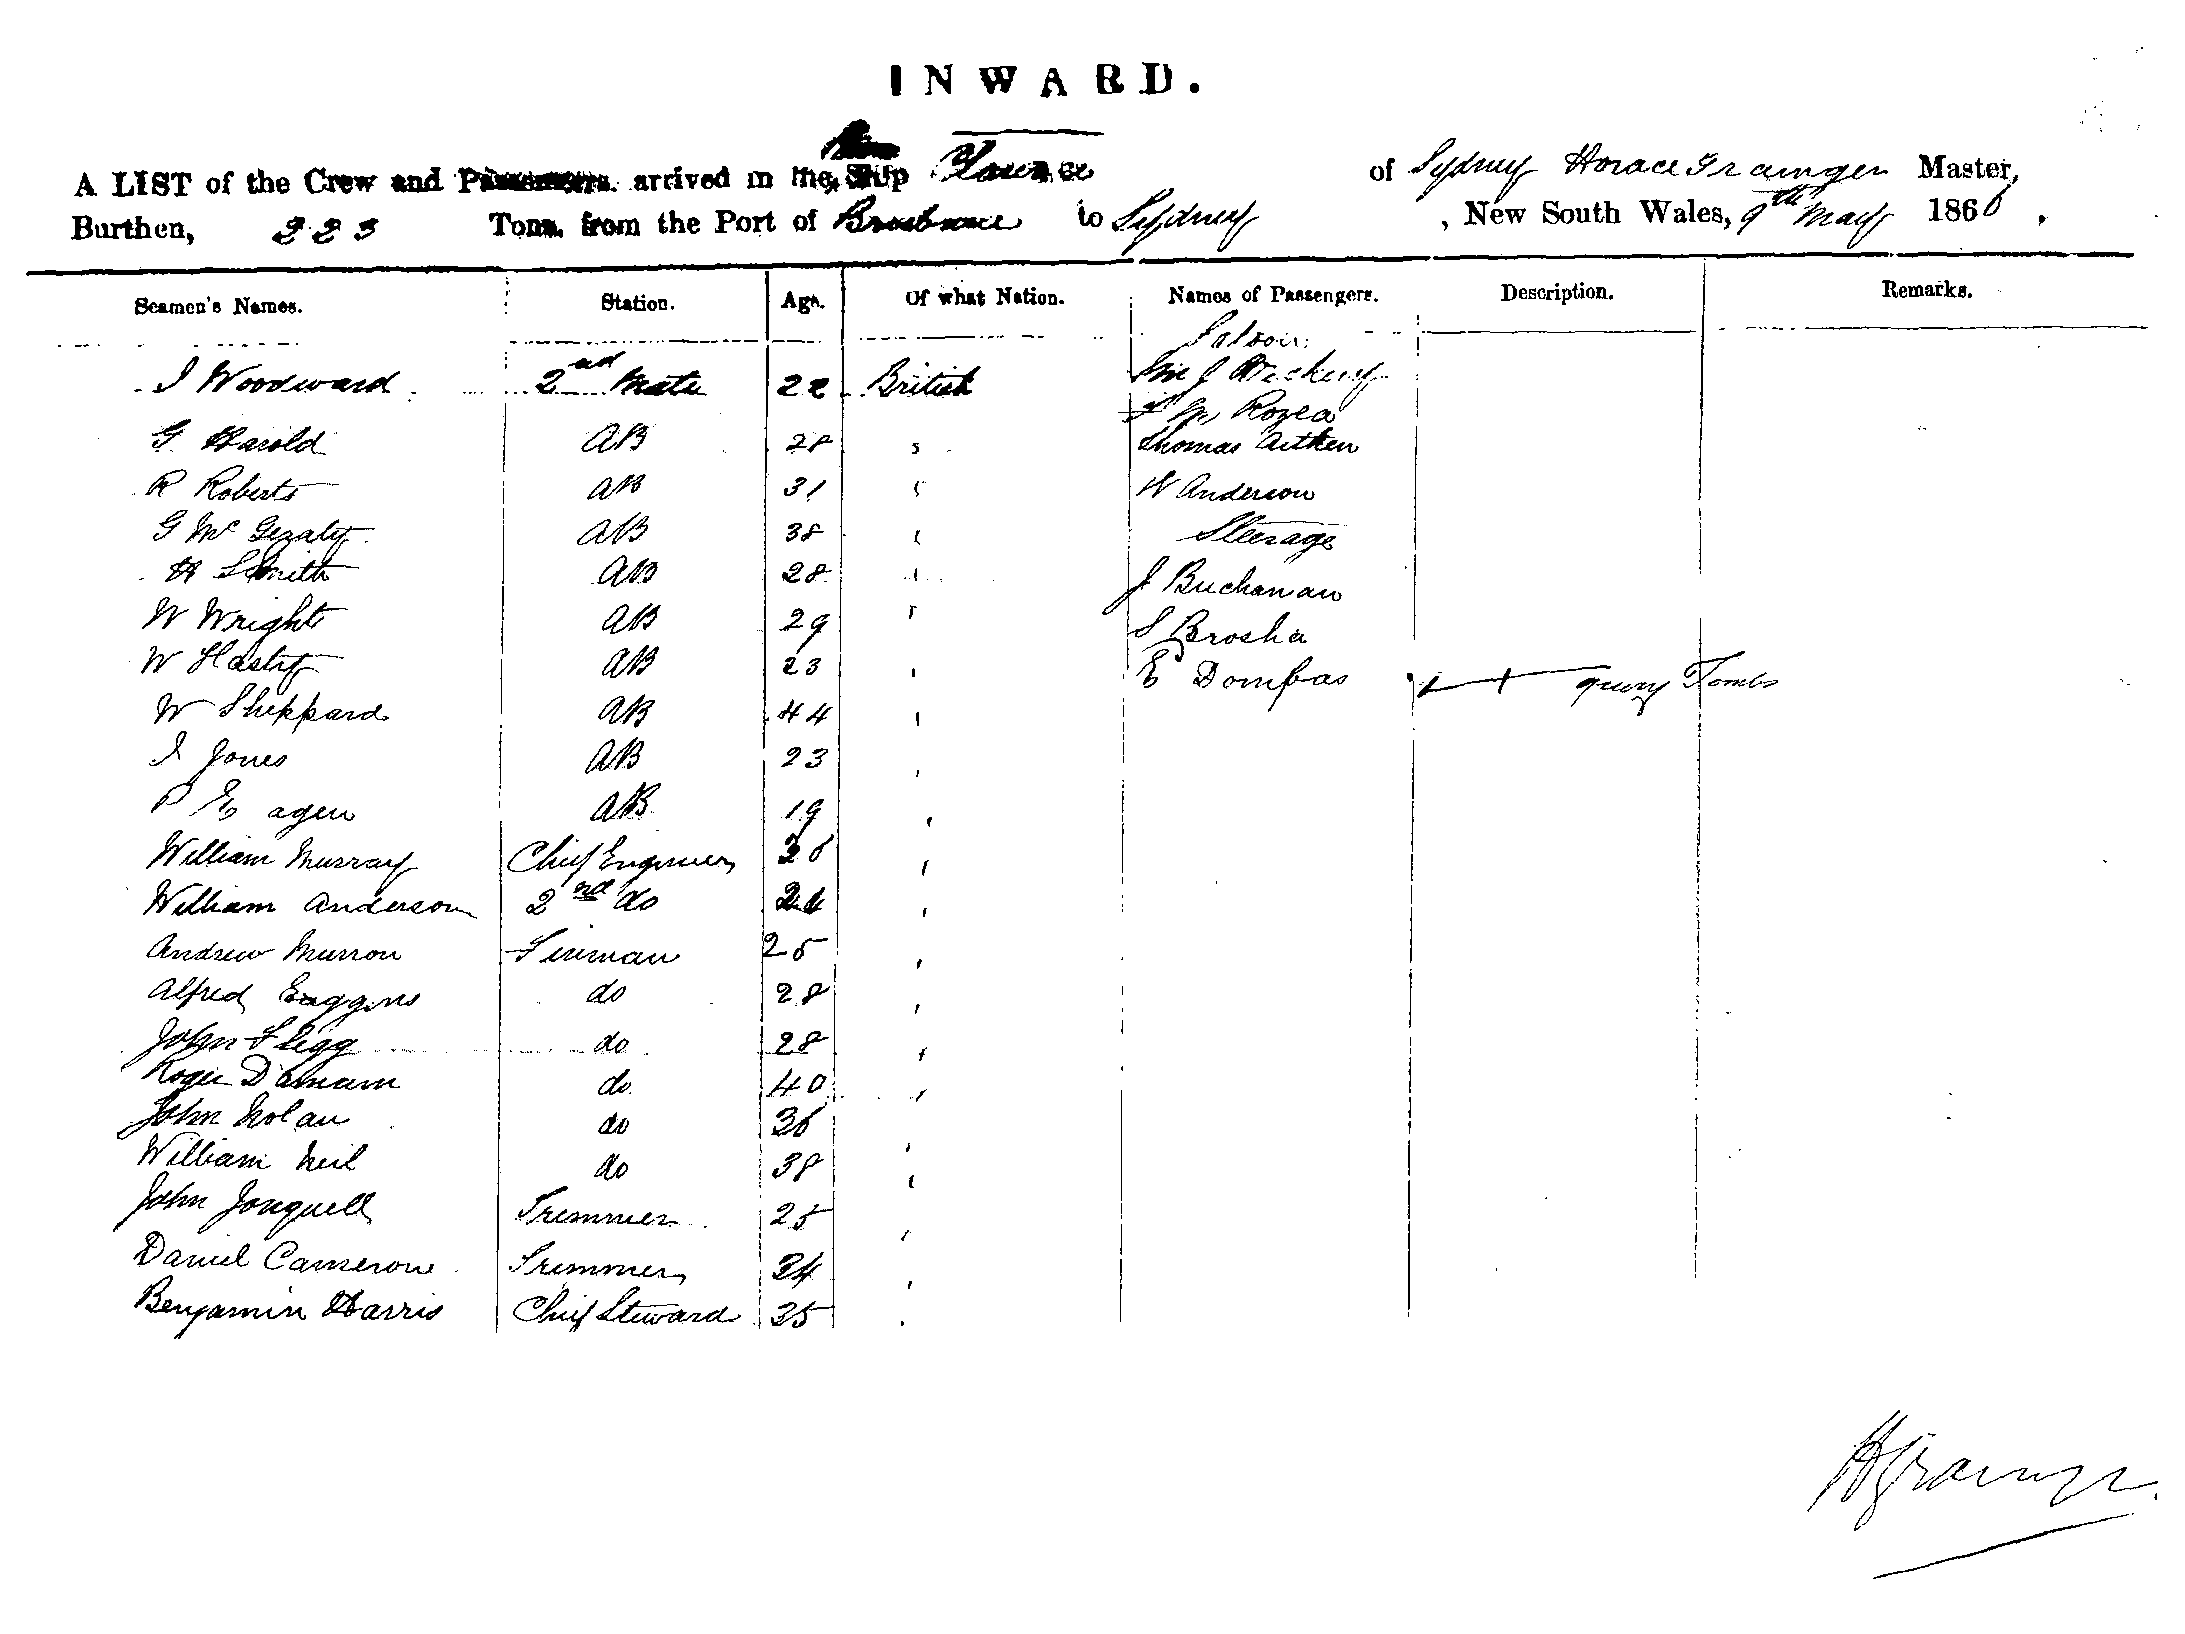 INWARD.
A LIST of the Crew and Passengers. arrived in the Ship Clarence of Sydney Horace Grainger Master,
Burthen, 223 Tons. from the Port of Brisbane to Sydney, New South Wales, 9th May 1866.
Seamen's Names. Station. Age. Of what Nation. Names of Passengers. Description. Remarks.
Saloon
J Woodward 2nd Mate 22 British
Rozea
G Harold AB 28 Thomas Aitken
R Roberts AB 31 W Anderson
G Mc AB 38 Steerage
H Smith AB 28 J Buchanan
W Wright AB 29 S Brosha
W Hasty AB 23 E Dombas query Tombs
W Sheppard AB 44
J Jones AB 23
P E agen AB 19
William Murray Chief Engineer 36
William Anderson 2nd do
Andrew Murron Fireman 25
Alfred do 28
John Fligg do 28
Roger do 40
John Nolan do 36
William Neil do 38
John Jonquell Trimmer 25
Daniel Cameron Trimmer 34
Benjamin Harris Chief Steward 35
H Grainger